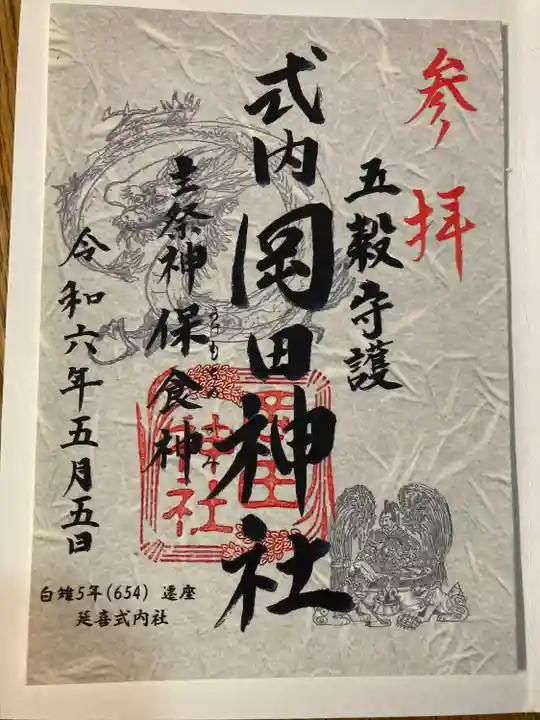 参拝
五穀守護
式内岡田神社
主祭神保食神
令和六年五月五日
白雉5年(654) 遷座
延喜式内社